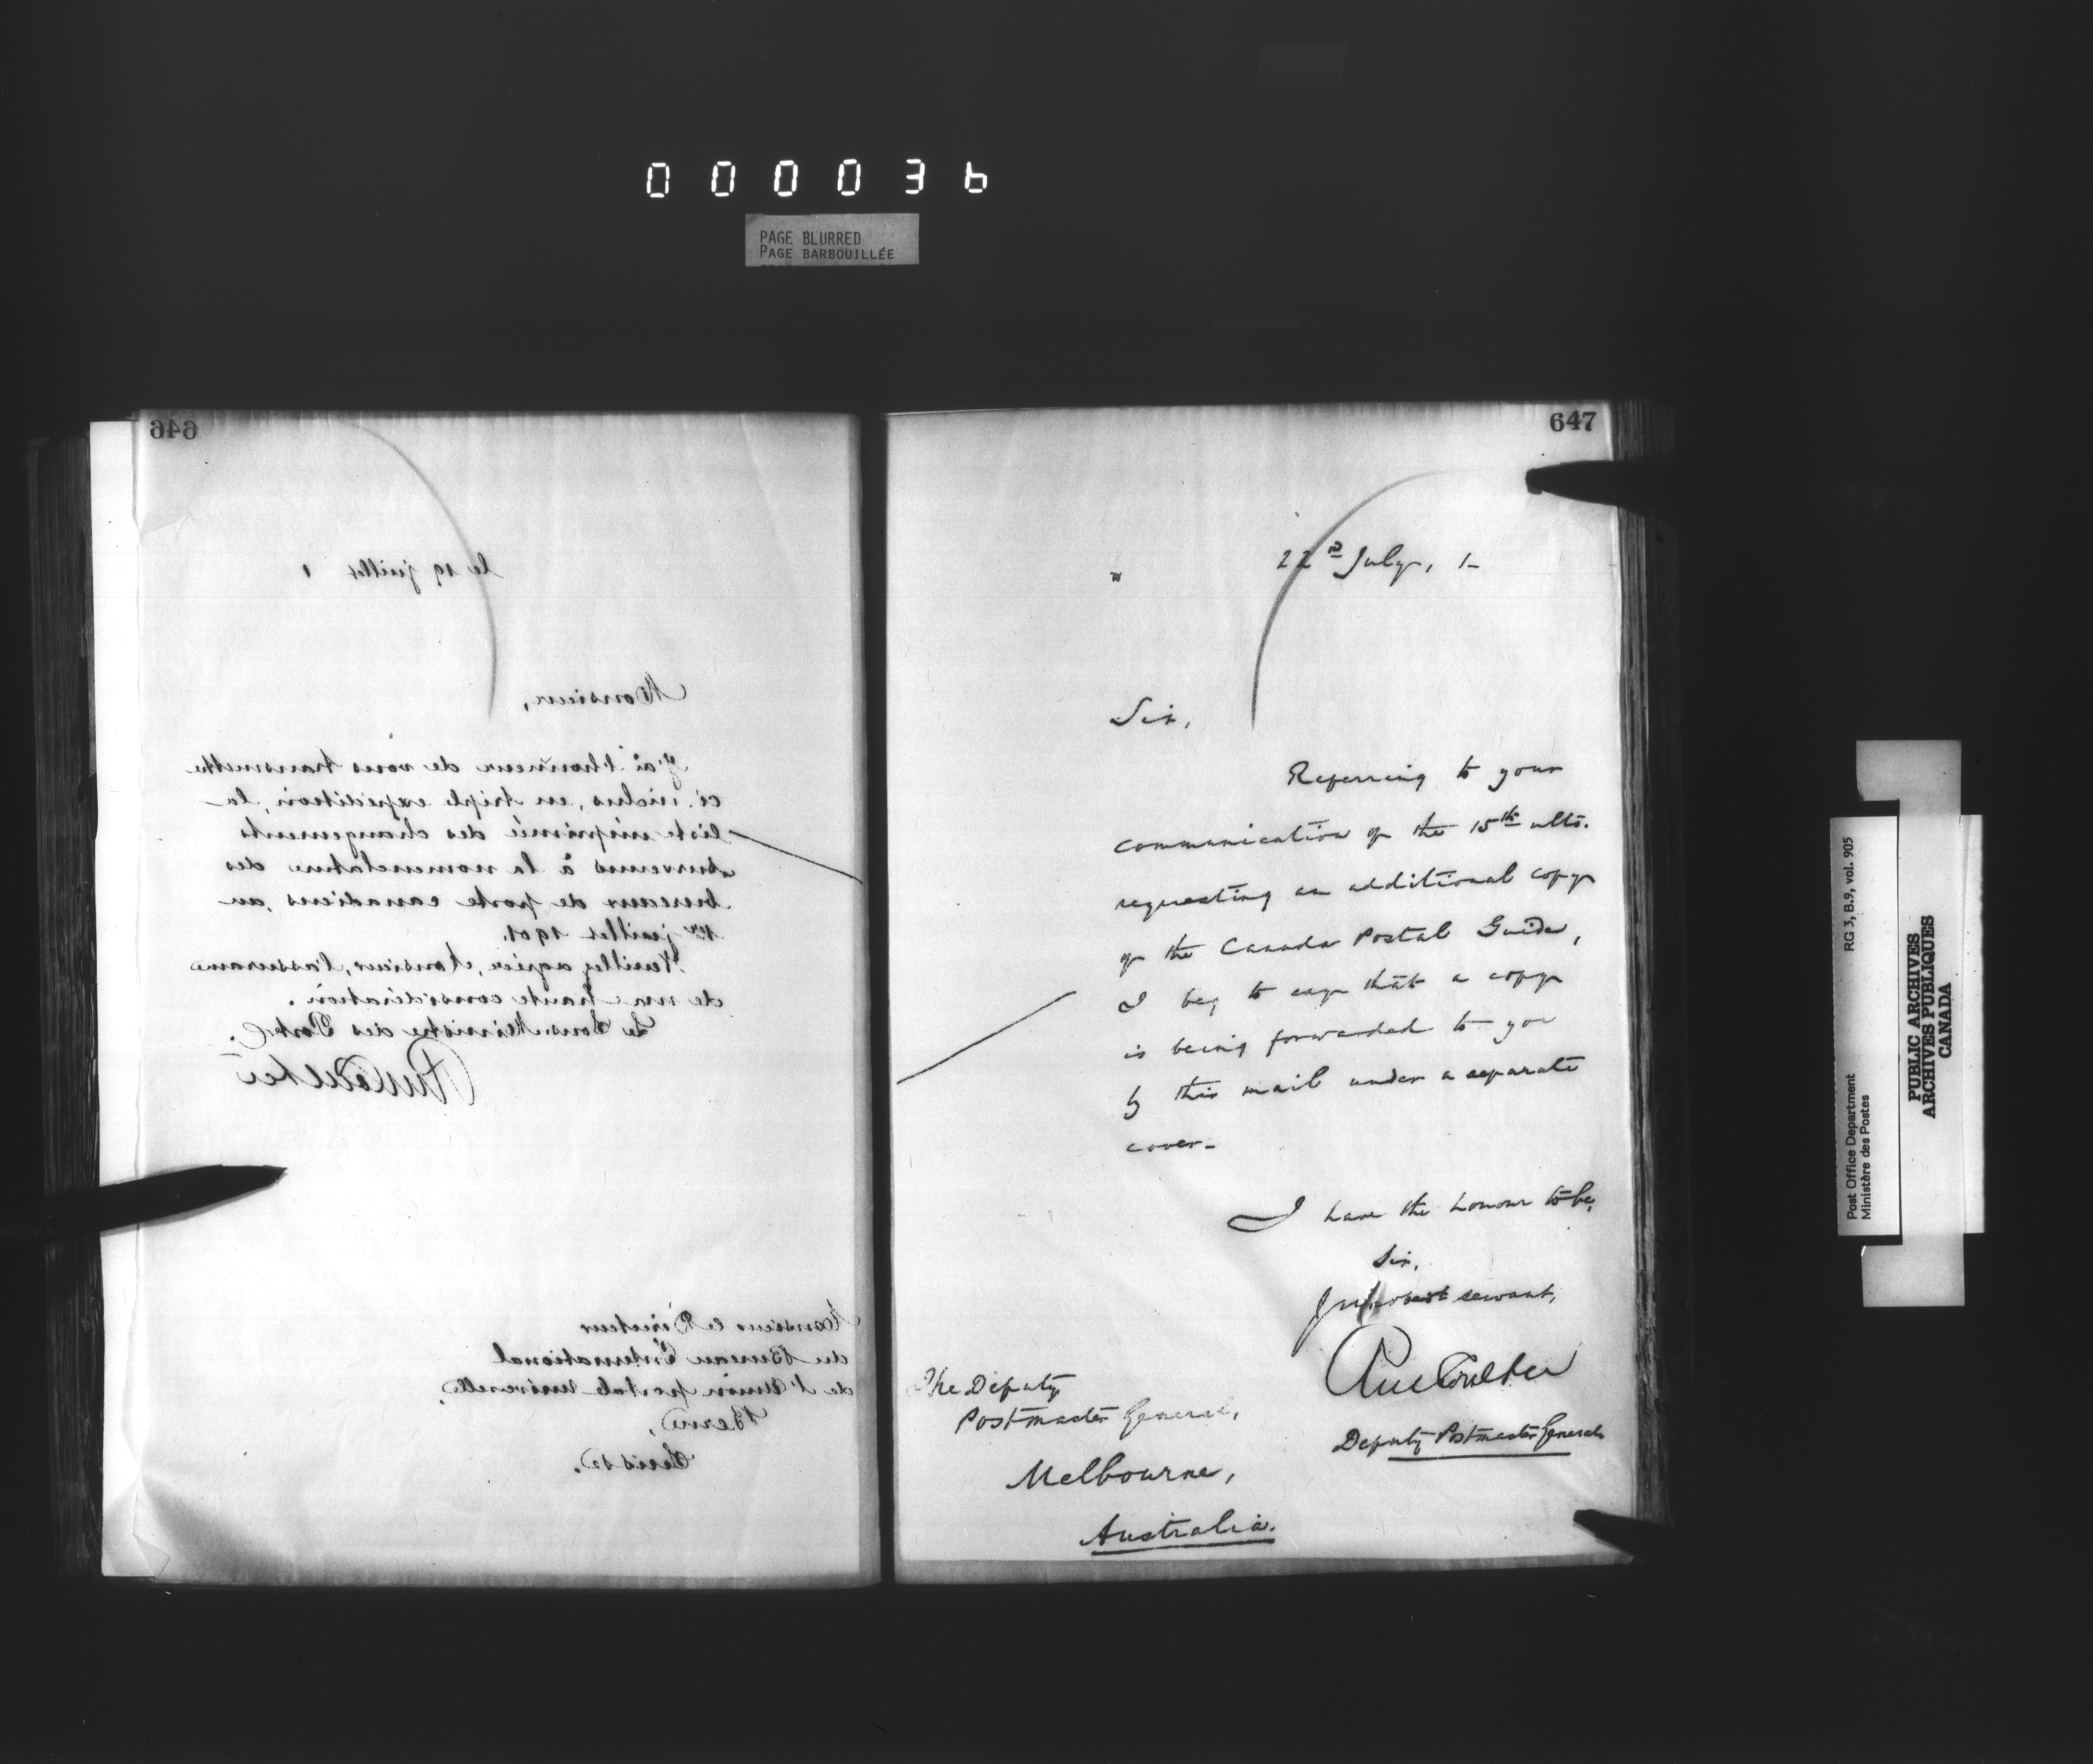 000036
PAGE BLURRED
PAGE BARBOUILLÉE
646
le 19 juillet 1
Monsieur,
J'ai l'honneur de vous transmettre
ci-inclus, en triple expédition, la
liste imprimée des changements
survenus à la nomenclature des
bureaux de poste canadiens, au
1er juillet 1901.
Veuillez agréer, Monsieur, l'assurance
de ma haute considération.
Le Sous-Ministre des Postes.
Monsieur le Directeur
du Bureau International
de l'Union postale universelle,
Berne,
Suisse.
647
22nd July, 1-
Sir,
Referring to your
communication of the 15th ulto.
requesting an additional copy
of the Canada Postal Guide,
I beg to say that a copy
is being forwarded to you
by this mail under a separate
cover-
I have the honour to be,
Sir,
obedt servant,
Coulter
Deputy Postmaster General
The Deputy
Postmaster General,
Melbourne,
Australia.
Post Office Department
Ministère des Postes
RG 3, B.9, vol. 905
PUBLIC ARCHIVES
ARCHIVES PUBLIQUES
CANADA